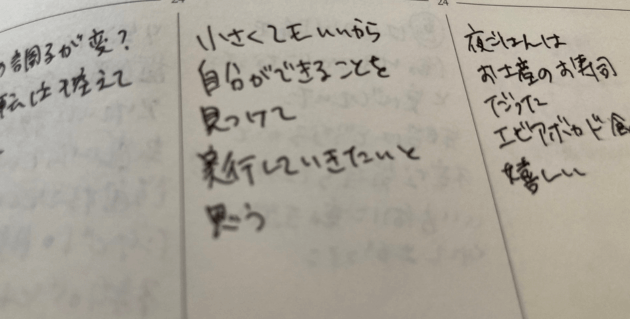 の調子が変?
転は控えて
24
小さくてもいいから
自分ができることを
見つけて
実行していきたいと
思う
24
夜ごはんは
お土産のお寿司
だった
エビアボカド食
嬉しい